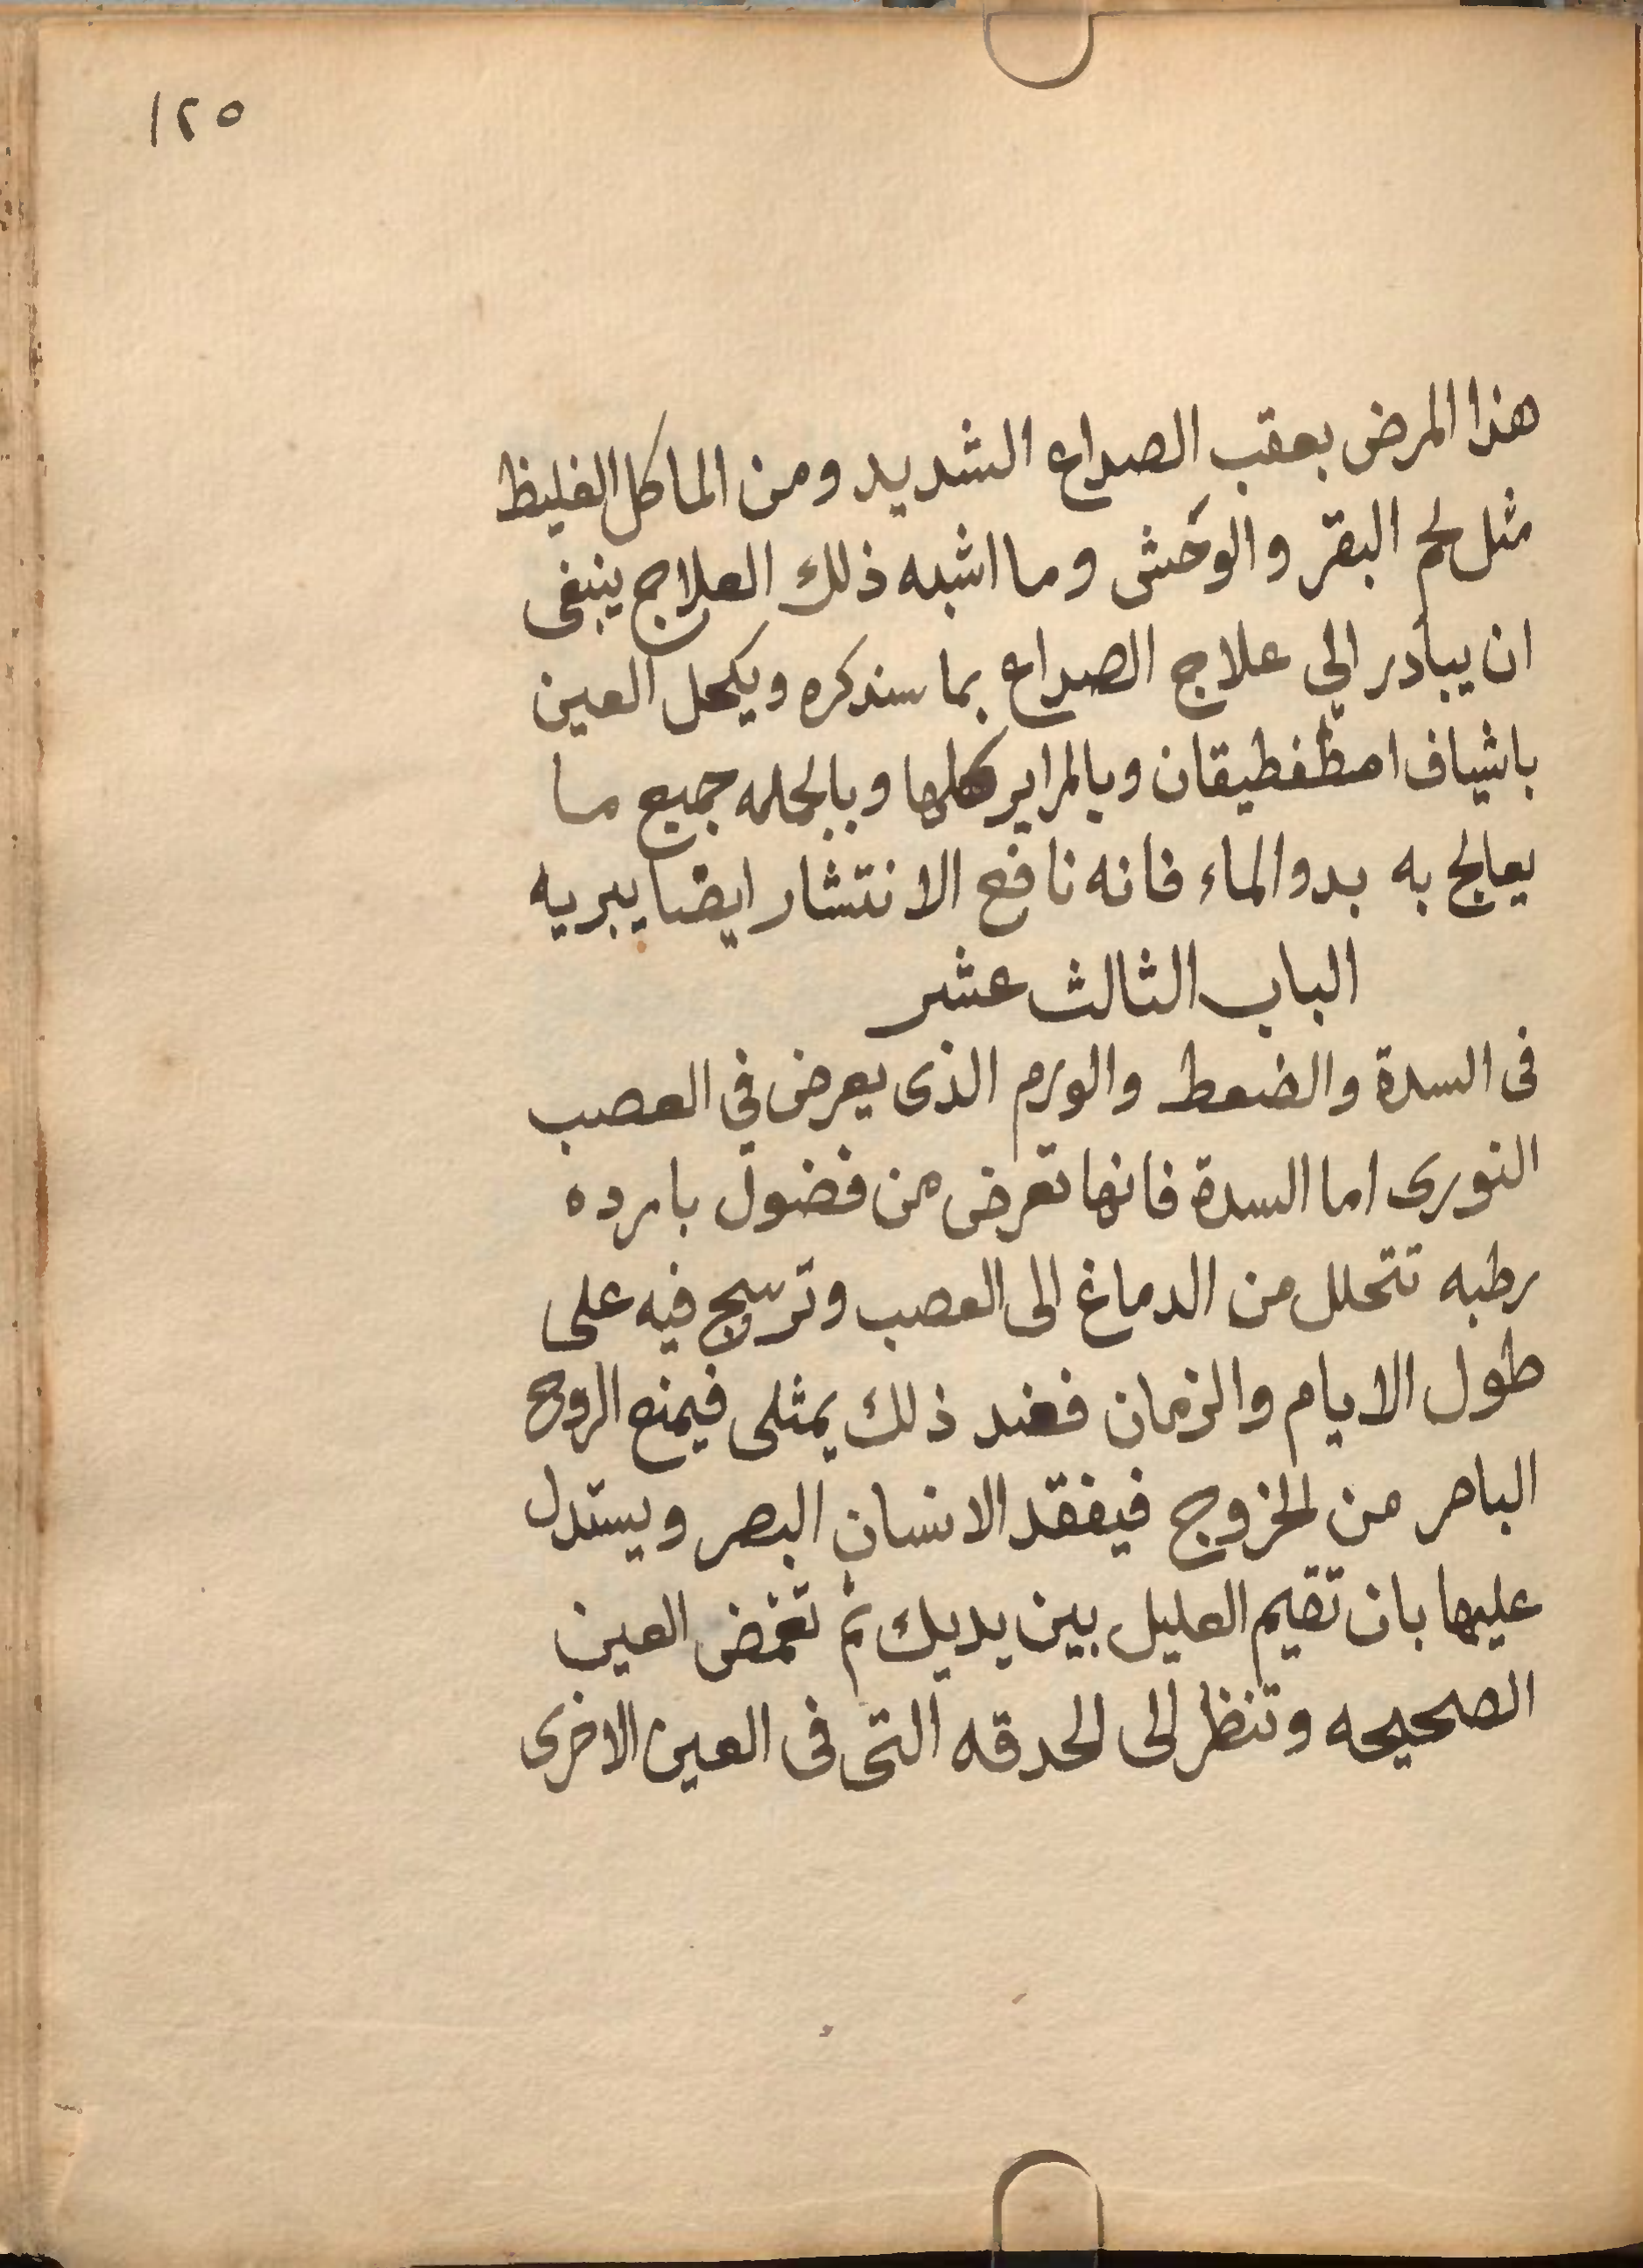 ١٢٥
هذا المرض بعقب الصداع الشديد ومن الماكل الغليظ
مثل لحم البقر والوحش وما اشبه ذلك العلاج ينبغى
ان يبادر الي علاج الصداع بما سنذكره ويكحل العين
باشياف اصطفطيقان وبالمراير كلها وبالجمله جميع ما
يعالج به بدو الماء فانه نافع الانتشار ايضا يبريه
الباب الثالث عشر
فى السدة والضعط والورم الذى يعرض في العصب
النورى اما السدة فانها تعرض من فضول بارده
رطبه تتحلل من الدماغ الى العصب وترسج فيه على
طول الايام والزمان فعند ذلك يمثلى فيمنع الروح
الباصر من الخروج فيفقد الانسان البصر ويستدل
عليها بان تقيم العليل بين يديك ثم تغمض العين
الصحيحه وتنظر الى الحدقه التى فى العين الاخرى